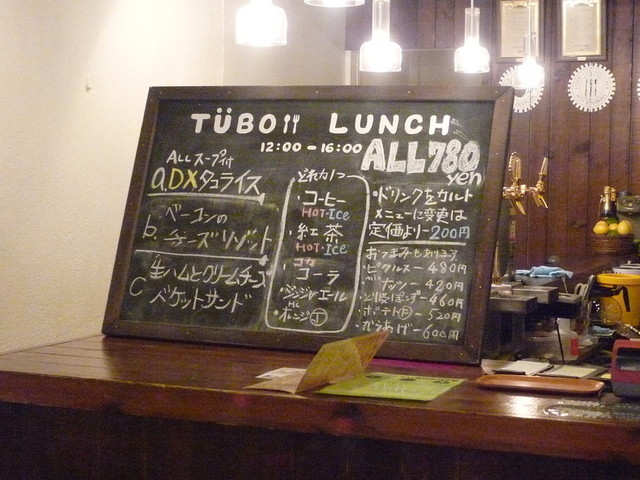 TÜBO LUNCH
12:00 - 16:00
ALL 780
yen
ALL スープ付
a.DXタコライス
b. ベーコンの
チーズリゾット
C 生ハムとクリームチーズ
バケットサンド
どれか1つ
・コーヒー
HOT・Ice
・紅茶
HOT・Ice
・コカ
コーラ
・ジンジャーエール
・オレンジ
・ドリンクをカルト
メニューに変更は
定価より-200円
おつまみもあります
・ピクルス-480円
-420円
-460円
・ポテト-520円
・からあげ-600円